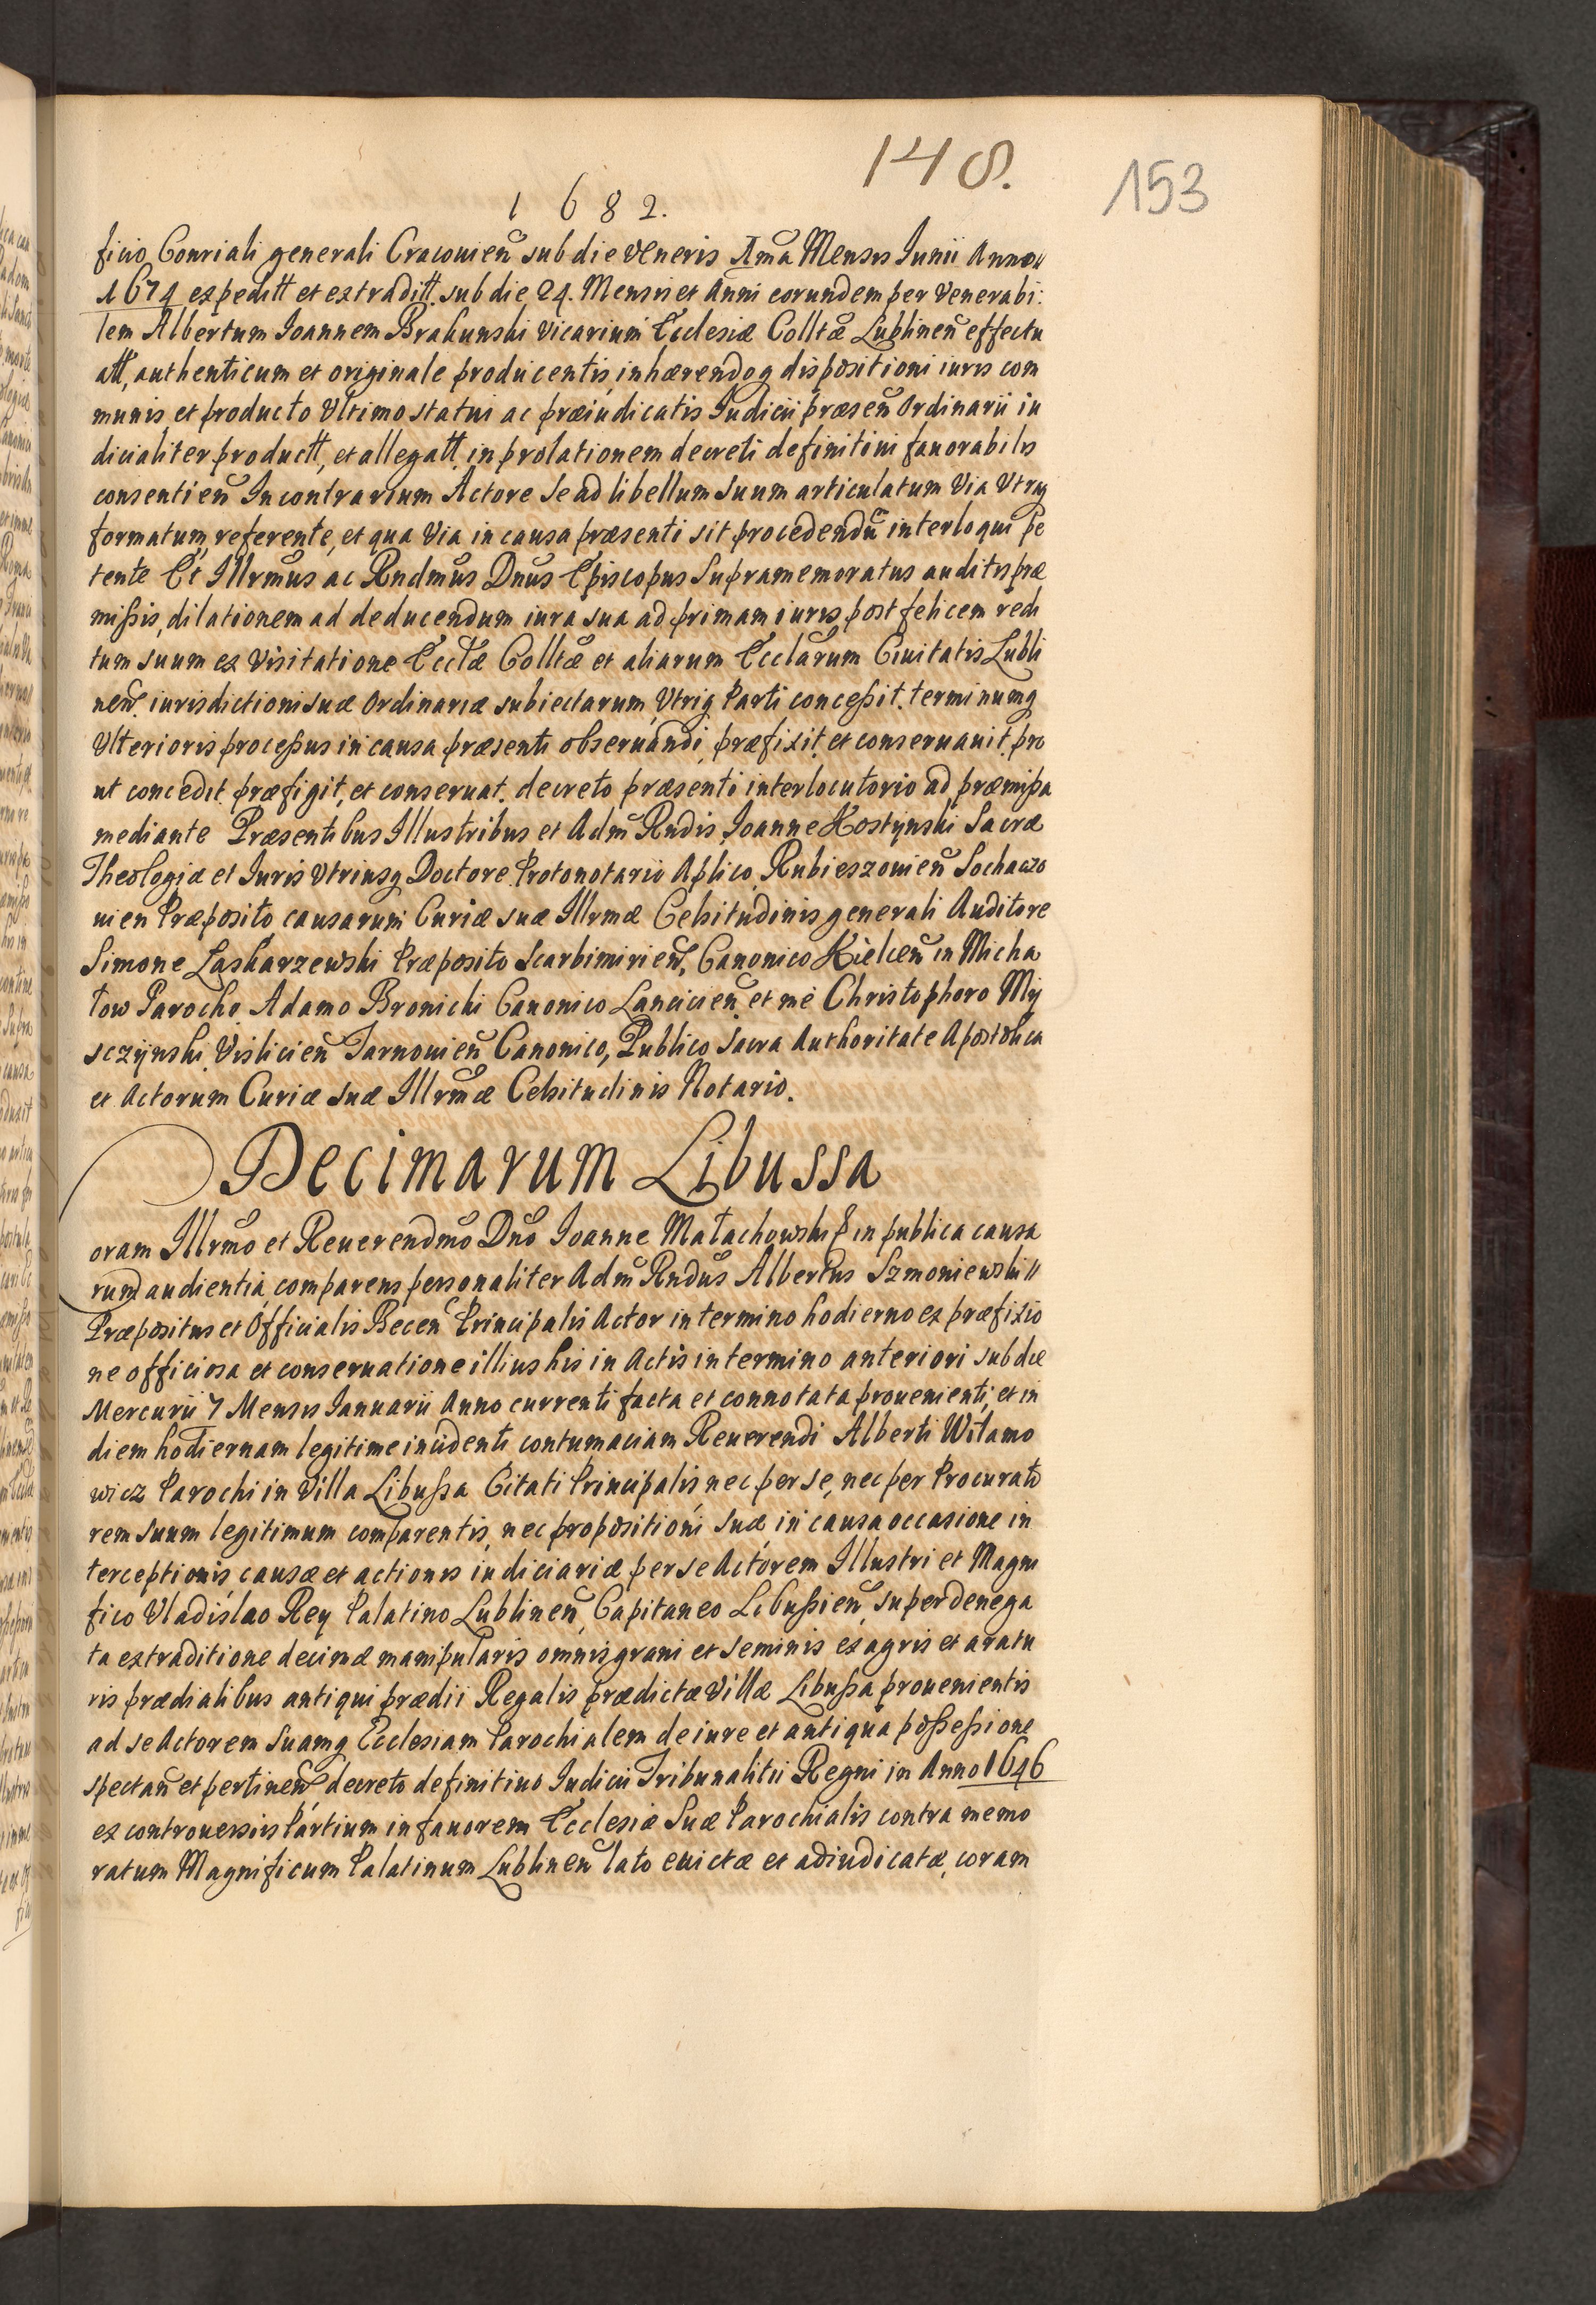 148.
153
1682.
ficio Conriali generali Cracouien sub die Veneris 1ma Mensis Iunii Anno
1674 expeditt et extraditt. sub die 24. Mensis et Anni eorundem per Venerabi:
lem Albertum Ioannem Brakunski Vicarium Ecclesiæ Colltæ Lublinen effectu
att, authenticum et originale producentis, inhærendoq dispositioni iuris com
munis, et producto Ultimo statui ac præiudicatis Iudicii præsen Ordinarii iu
dicialiter productt, et allegatt, in prolationem decreti definitiui fauorabilis
consentien In contrarium Actore se ad libellum suum articulatum Via Utraq
formatum, referente, et qua Via in causa præsenti sit procedendū interloqui pe
tente Et Illrmus ac Rndmus Dnus Episcopus Supramemoratus auditis præ
missis, dilationem ad deducendum iura sua ad primam iuris post felicem redi
tum suum ex Visitatione Ecctæ Colltæ et aliarum Ecclarum Ciuitatis Lubli
nen. iurisdictioni suæ Ordinariæ subiectarum, Utriq Parti concessit. terminumq
Ulterioris processus in causa præsenti obseruandi, præfixit et conseruauit, pro
ut concedit præfigit, et conseruat. decreto præsenti interlocutorio ad præmissa
mediante Præsentibus Illustribus et Adm Rndis Ioanne Kostynski Sacræ
Theologiæ et Iuris Utriusq Doctore Protonotario Aplico Rubieszouien Sochaczo
uien Præposito, causarum Curiæ suæ Illrmæ Celsitudinis generali Auditore
Simone Laskarzewski Præposito Scarbimirien, Canonico Kielcen in Micha
łow Parocho Adamo Bronicki Canonico Lancicien et me Christophoro My
sczynski, Vislicien Tarnouien Canonico, Publico Sacra Authoritate Apostolica
et Actorum Curiæ suæ Illrmæ Celsitudinis Notario.
Decimarum Libussa
oram Illrmo et Reuerendmo Dno Ioanne Małachowski & in publica causa
rum audientia, comparens personaliter Adm Rndus Albertus Szmoniewski
Præpositus et Officialis Becen Principalis Actor in termino hodierno ex præfixio
ne officiosa et conseruatione illius his in Actis in termino anteriori sub die
Mercurii 7 Mensis Ianuarii Anno currenti facta et connotata prouenienti, et in
diem hodiernam legitime incidenti contumaciam Reuerendi Alberti Witamo
wicz Parochi in Villa Libussa Citati Principalis, nec per se, nec per Procurato
rem suum legitimum comparentis, nec propositioni suæ in causa occasione in
terceptionis, causæ et actionis iudiciariæ per se Actorem Illustri et Magni
fico Vladislao Rey Palatino Lublinen, Capitaneo Libussien, super denega
ta extraditione decimæ manipularis omnis grani et seminis ex agris et aratu
ris prædialibus antiqui prædii Regalis prædictæ Villæ Libussa prouenientis
ad se Actorem Suamq Ecclesiam Parochialem de iure et antiqua possessione
spectan et pertinen, decreto definitiuo Iudicii Tribunalitii Regni in Anno 1646
ex controuersiis Partium in fauorem Ecclesiæ Suæ Parochialis contra memo
ratum Magnificum Palatinum Lublinen lato euictæ et adiudicatæ, coram